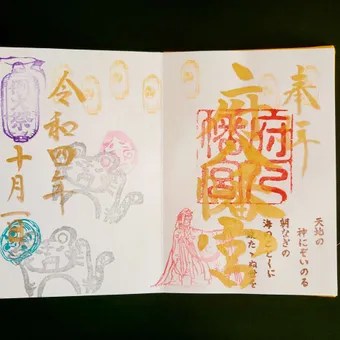 奉拝
府八幡宮
府八幡宮
天地の
神にぞいのる
朝なぎの
海のごとくに
波たたぬ世を
令和四年
十月一